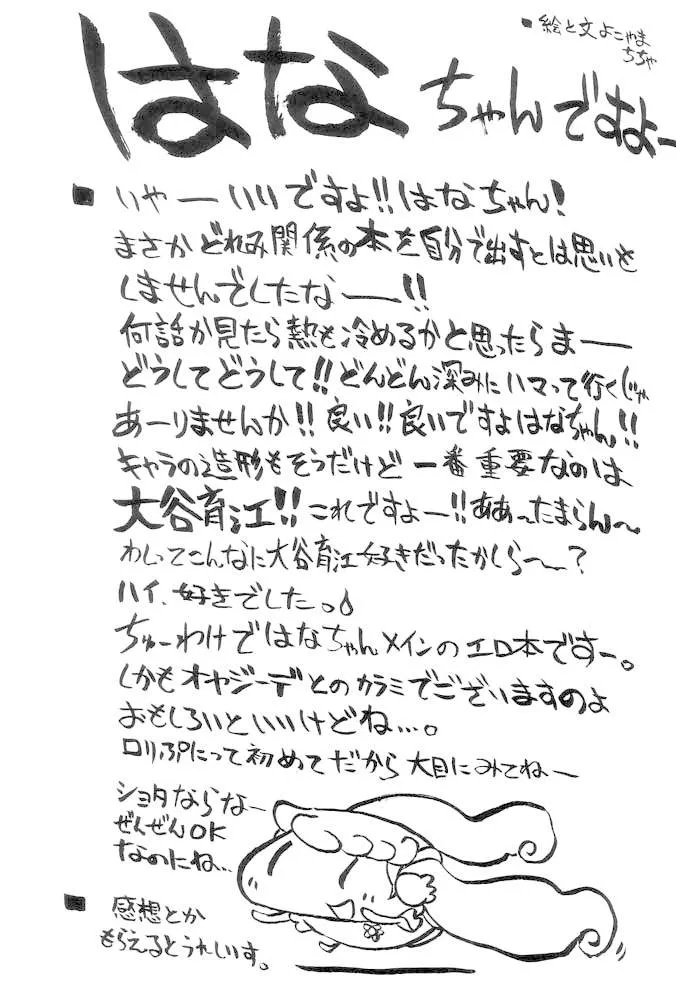 ■絵と文 よこやま
ちちゃ
はなちゃんですよー
■いやーいいですよ!!はなちゃん!
まさかどれみ関係の本を自分で出すとは思いも
しませんでしたなー!!
何話か見たら熱も冷めるかと思ったらまー
どうしてどうして!!どんどん深みにハマって行くじゃ
あーりませんか!!良い!!良いですよはなちゃん!!
キャラの造形もそうだけど一番重要なのは
大谷育江!!これですよー!!ああったまらん〜
わしってこんなに大谷育江好きだったかしら〜?
ハイ、好きでした。
ちゅーわけではなちゃんメインのエロ本ですー。
しかもオヤジーデとのカラミでございますのよ
おもしろいといいけどね…。
ロリぷにって初めてだから大目にみてねー
ショタならなー
ぜんぜんOK
なのにね…
■感想とか
もらえるとうれしいす。